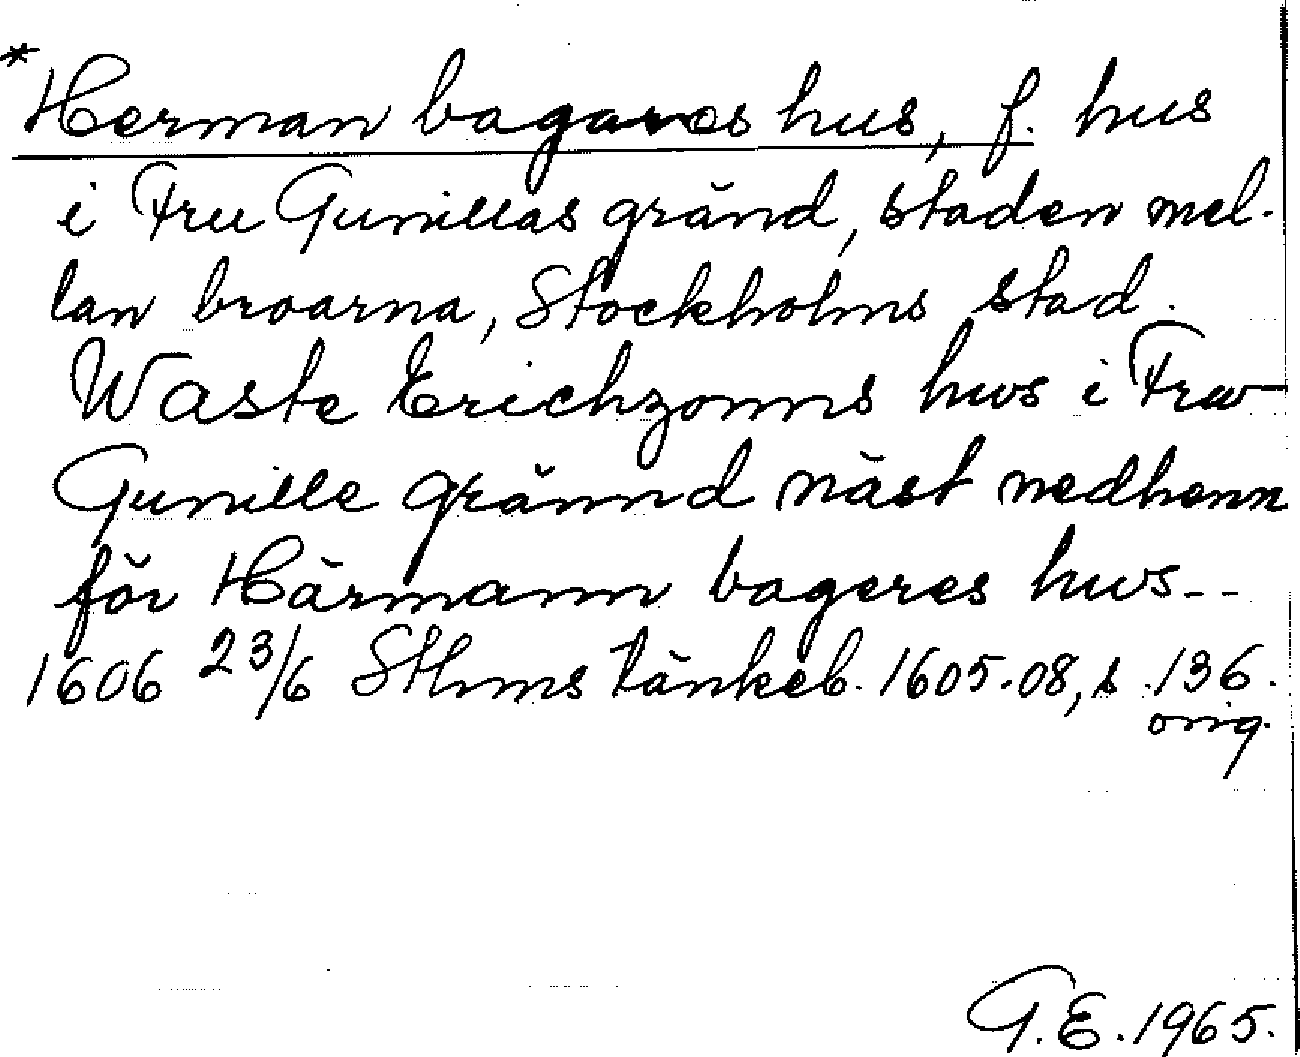 * Herman bagares hus, f. hus
i Fru Gunillas gränd, staden mel-
lan broarna, Stockholms stad.
Waste Erichzonns hws i Frw
Gunille grännd näst nedhenn
för Härmann bageres hws--
1606 23/6 Sthms tänkeb. 1605-08, s. 136.
orig.
G.E. 1965.